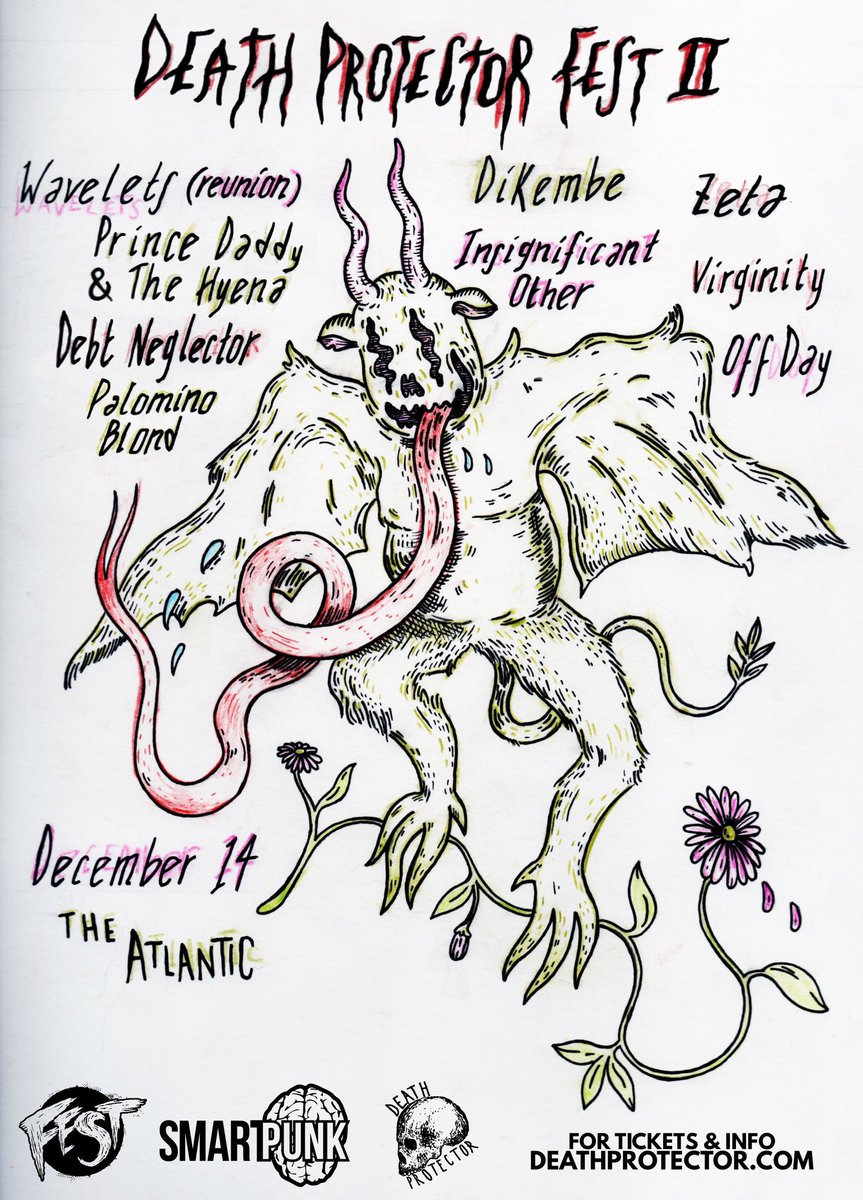 DEATH PROTECTOR FEST II
Wavelets (reunion)
Prince Daddy
& The Hyena
Debt Neglector
Palomino
Blond
Dikembe
Insignificant
Other
Zeta
Virginity
Off Day
December 14
THE
ATLANTIC
FEST
SMARTPUNK
DEATH
PROTECTOR
FOR TICKETS & INFO
DEATHPROTECTOR.COM